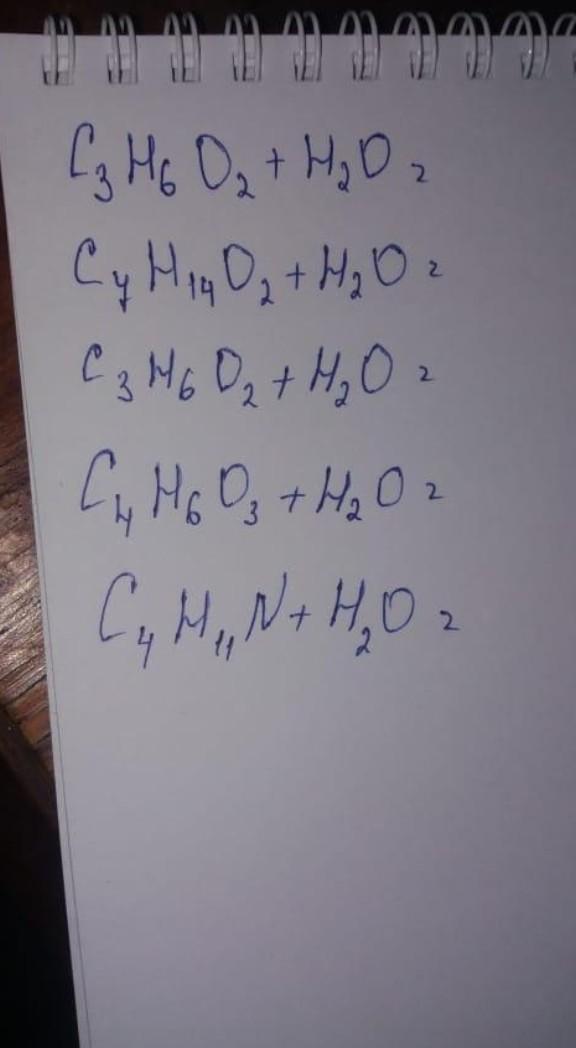 C₃H₆O₂ + H₂O =
C₇H₁₄O₂ + H₂O =
C₃H₆O₂ + H₂O =
C₄H₆O₃ + H₂O =
C₄H₁₁N + H₂O =